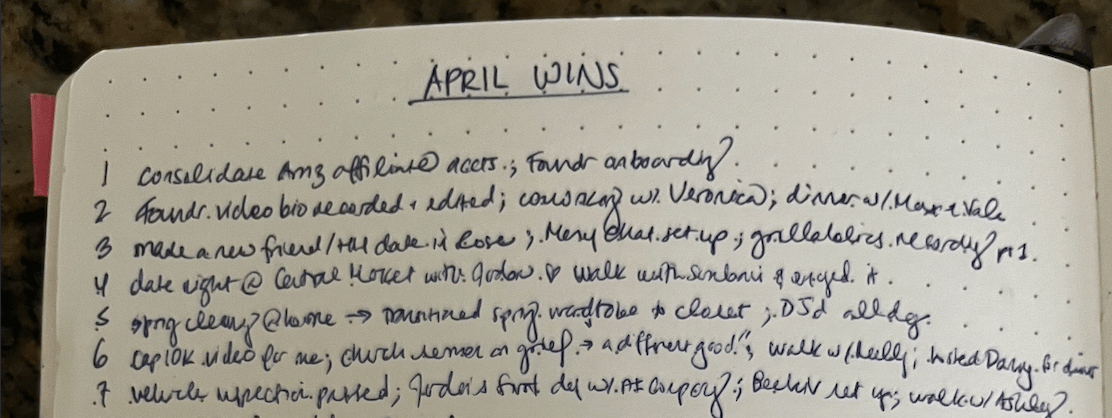 APRIL WINS
1 consolidate Amz affiliate accts.; Foundr onboarding.
2 Foundr video bio recorded + edited; coworking w/ Veronica; dinner w/
3 made a new friend / date Rose; Many Chat set up; recording pt 1.
4 date night @ Central Market with Jordan ♡ walk with & enjoyed it.
5 spring cleaning @ home → spring wardrobe to closet; DJd all day.
6 cap10K video for me; church sermon on grief → "a different good", walk w/ Kelly; hosted Danny for dinner
7 vehicle inspection passed; Jordan's first day w/ company; set up; walk w/ Ashley